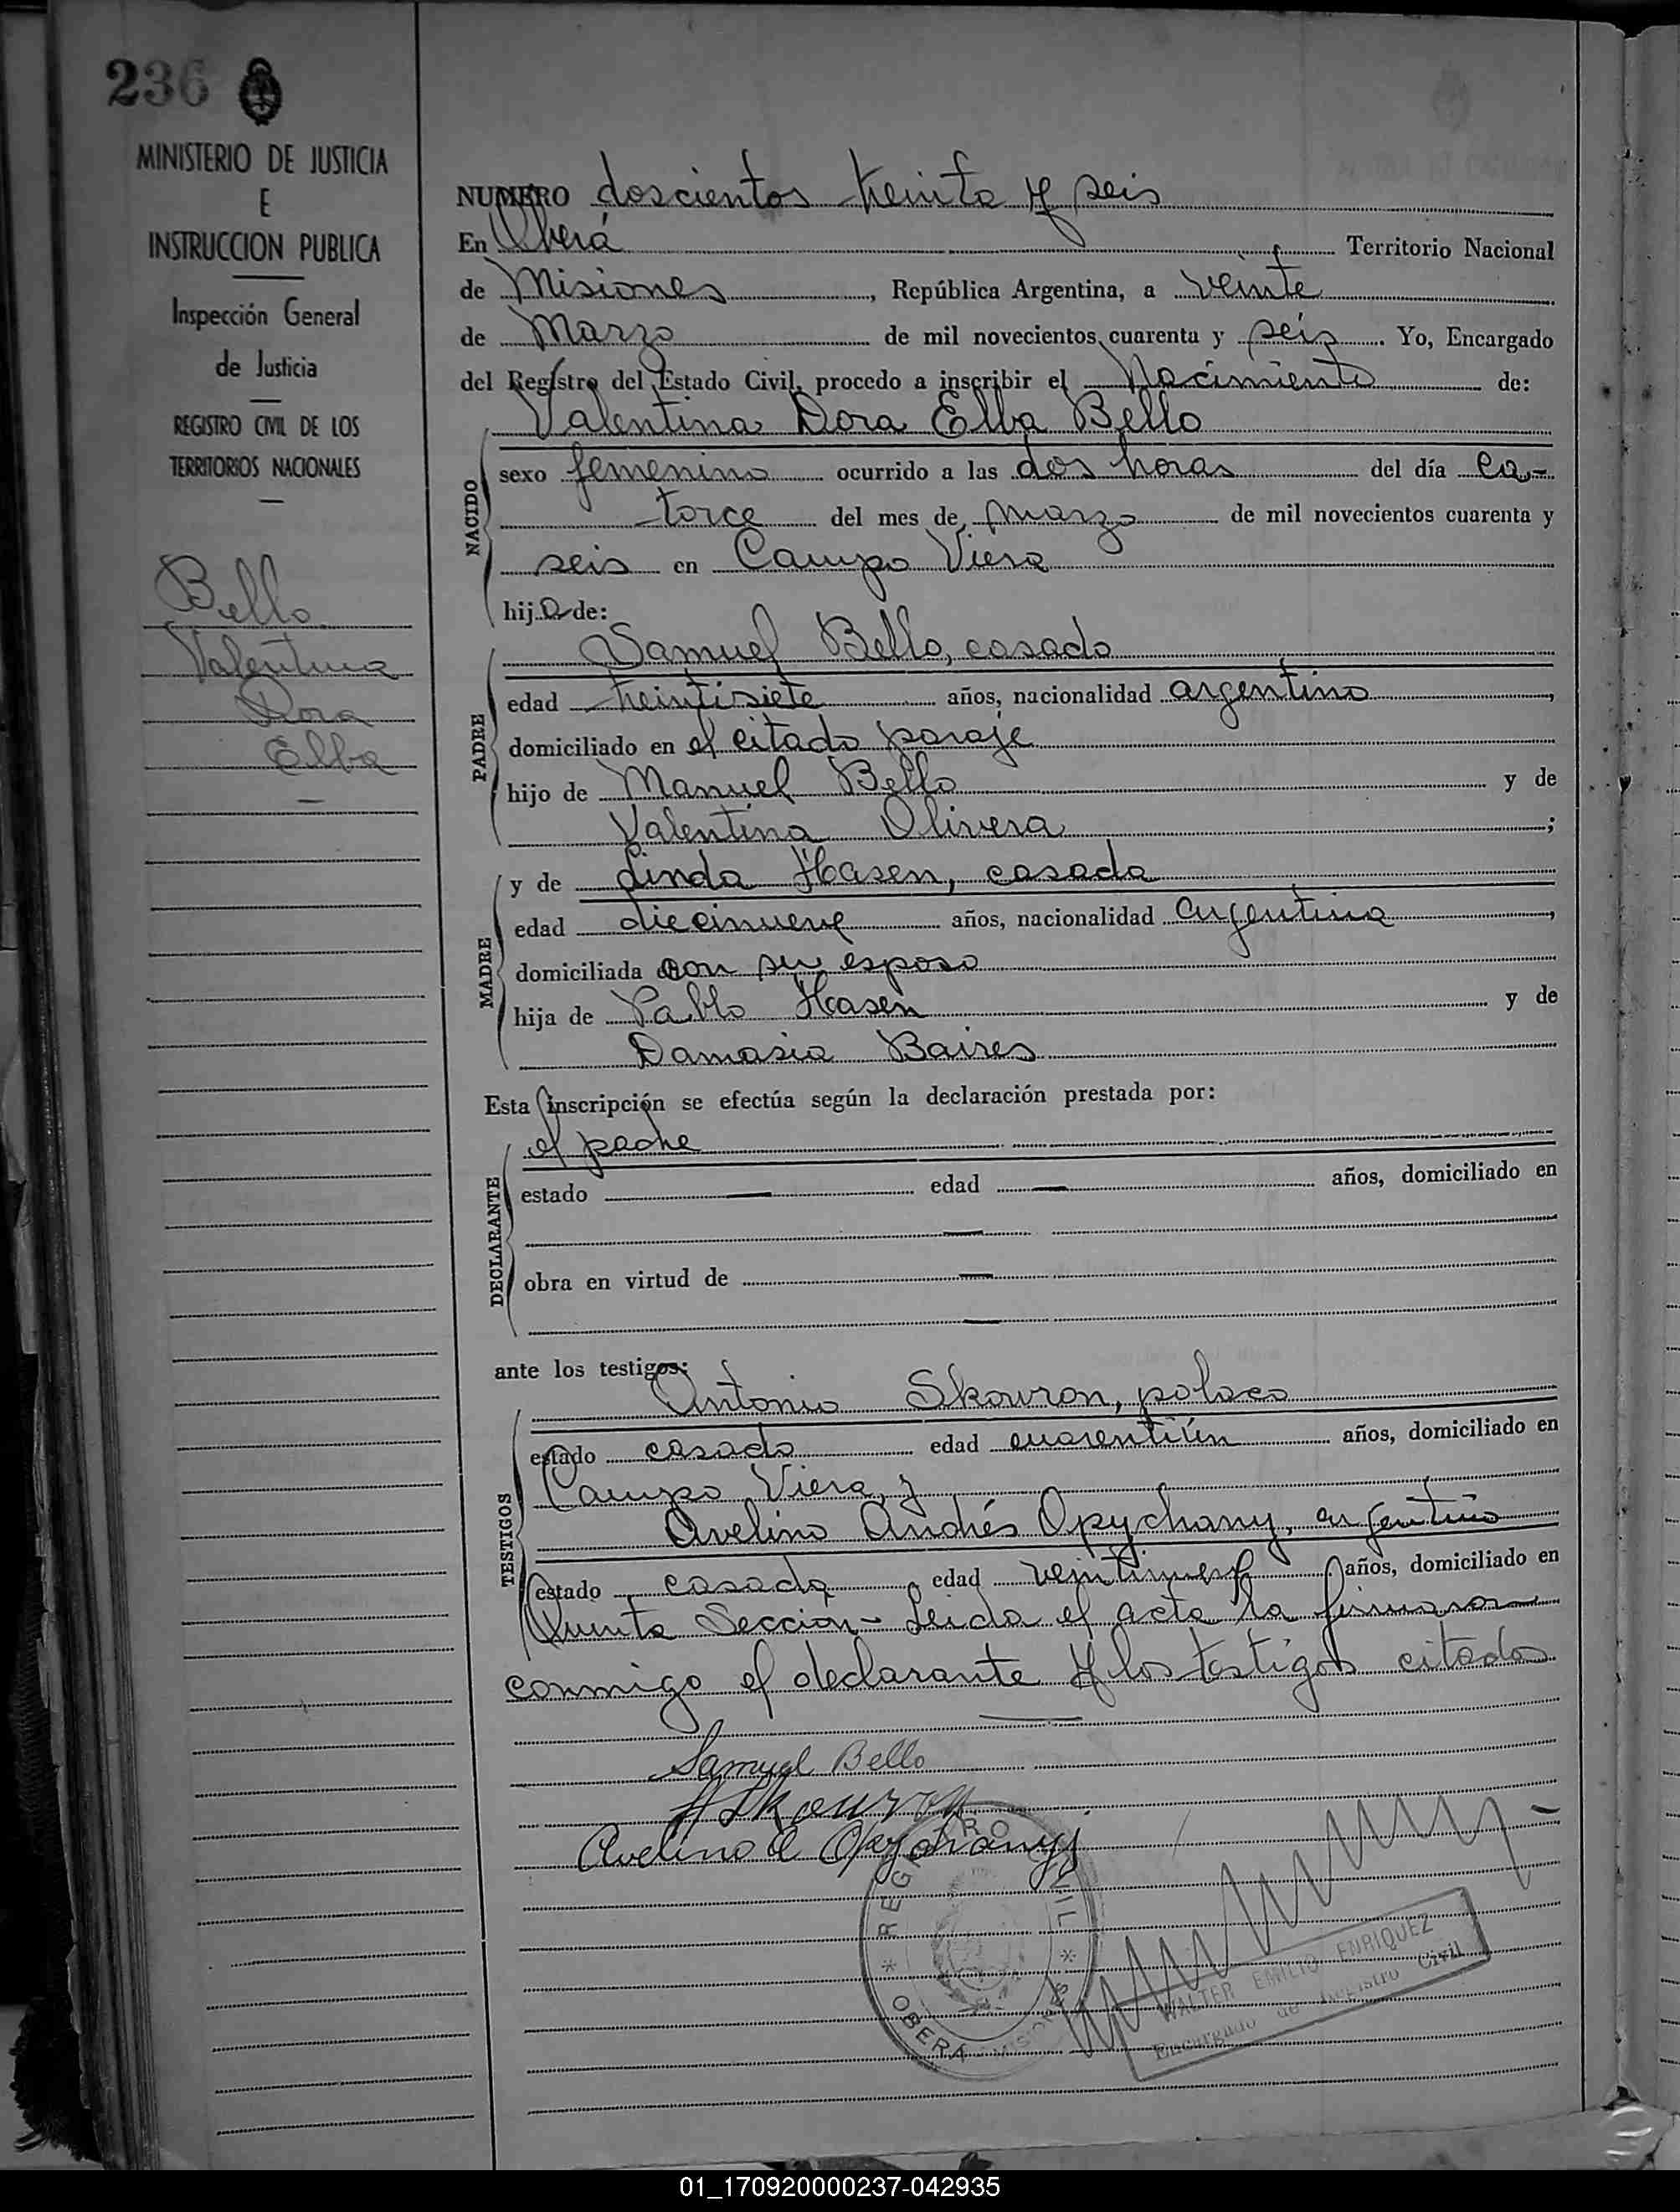 236
MINISTERIO DE JUSTICIA
E
INSTRUCCION PUBLICA
Inspección General
de Justicia
REGISTRO CIVIL DE LOS
TERRITORIOS NACIONALES
Bello
Valentina
Dora
Elba
NUMERO doscientos treinta y seis
En Oberá Territorio Nacional
de Misiones, República Argentina, a veinte
de Marzo de mil novecientos cuarenta y seis. Yo, Encargado
del Registro del Estado Civil, procedo a inscribir el Nacimiento de:
Valentina Dora Elba Bello
NACIDO
sexo femenino ocurrido a las dos horas del día ca-
torce del mes de marzo de mil novecientos cuarenta y
seis en Campo Viera
hija de:
Samuel Bello, casado
PADRE
edad treintisiete años, nacionalidad argentino,
domiciliado en el citado paraje
hijo de Manuel Bello y de
Valentina Olivera;
MADRE
y de Linda Hasen, casada
edad diecinueve años, nacionalidad argentina,
domiciliada con su esposo
hija de Pablo Hasen y de
Damasia Baires
Esta inscripción se efectúa según la declaración prestada por:
el padre
DECLARANTE
estado — edad — años, domiciliado en
—
obra en virtud de —
—
ante los testigos:
Antonio Skowron, polaco
TESTIGOS
estado casado edad cuarentiún años, domiciliado en
Campo Viera, y
Avelino Andrés Opychany, argentino
estado casado, edad veintinueve años, domiciliado en
Quinta Sección - Leida el acta la firmaron
conmigo el declarante y los testigos citados
Samuel Bello
ASkowron
Avelino A Opychany
REGISTRO CIVIL * OBERA - MISIONES *
WALTER EMILIO ENRIQUEZ
Encargado de Registro Civil
01_170920000237-042935